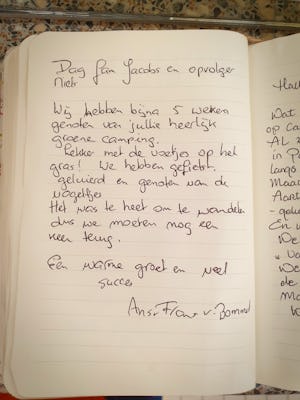 Dag fam Jacobs en opvolger
Wij hebben bijna 5 weken
genoten van jullie heerlijk
groene camping.
Lekker met de voetjes op het
gras! We hebben gefietst,
geluierd en genoten van de
vogeltjes
Het was te heet om te wandelen
dus we moeten nog een
keer terug.
Een warme groet en veel
succes
Ans + Frans v. Bommel
Wat
op
AL
in
langs
Maa
Aart
En
De
We
de